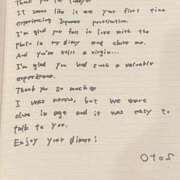 It seems like it was your first time
experiencing Japanese
I'm glad you fell in love with the
photo in my diary and chose me.
And you're still a virgin...
I'm glad you had such a valuable
experience.
Thank you so much
I was nervous, but we were
close in age and it was easy to
talk to you.
Enjoy your dinner!